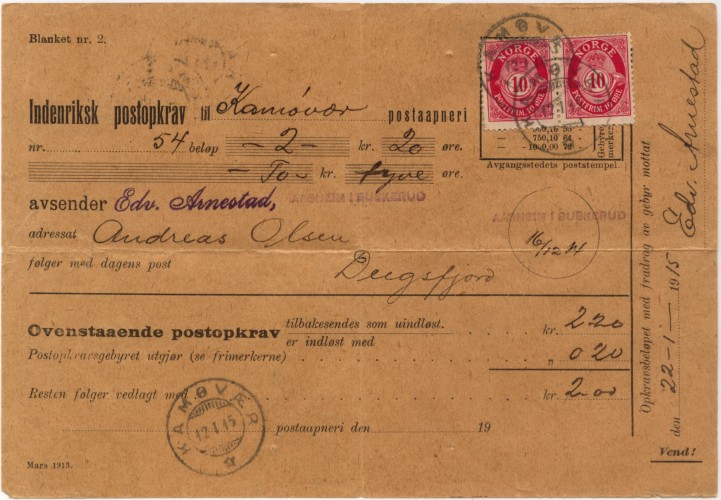 Blanket nr. 2.
KAMØVÆR
NORGE
10
POSTFRIM. 10 ØRE.
NORGE
10
POSTFRIM. 10 ØRE.
Indenriksk postopkrav til Kamøvær postaapneri
nr. 54 beløp - 2 - kr. 20 øre.
- To - kr. tyve øre.
750,10 64
Avgangsstedets poststempel.
avsender Edv. Arnestad,
BUSKERUD
BUSKERUD
adressat Andreas Olsen
16/12 14
følger med dagens post
Ovenstaaende postopkrav tilbakesendes som uindløst.
er indløst med kr. 2 20
Postopkravsgebyret utgjør (se frimerkerne) " 0 20
Resten følger vedlagt med kr. 2-00
KAMØVÆR
12.1.15
postaapneri den 19
Mars 1913.
Opkravsbeløpet med fradrag av gebyr mottat
den 22-1- 1915 Edv. Arnestad
Vend!